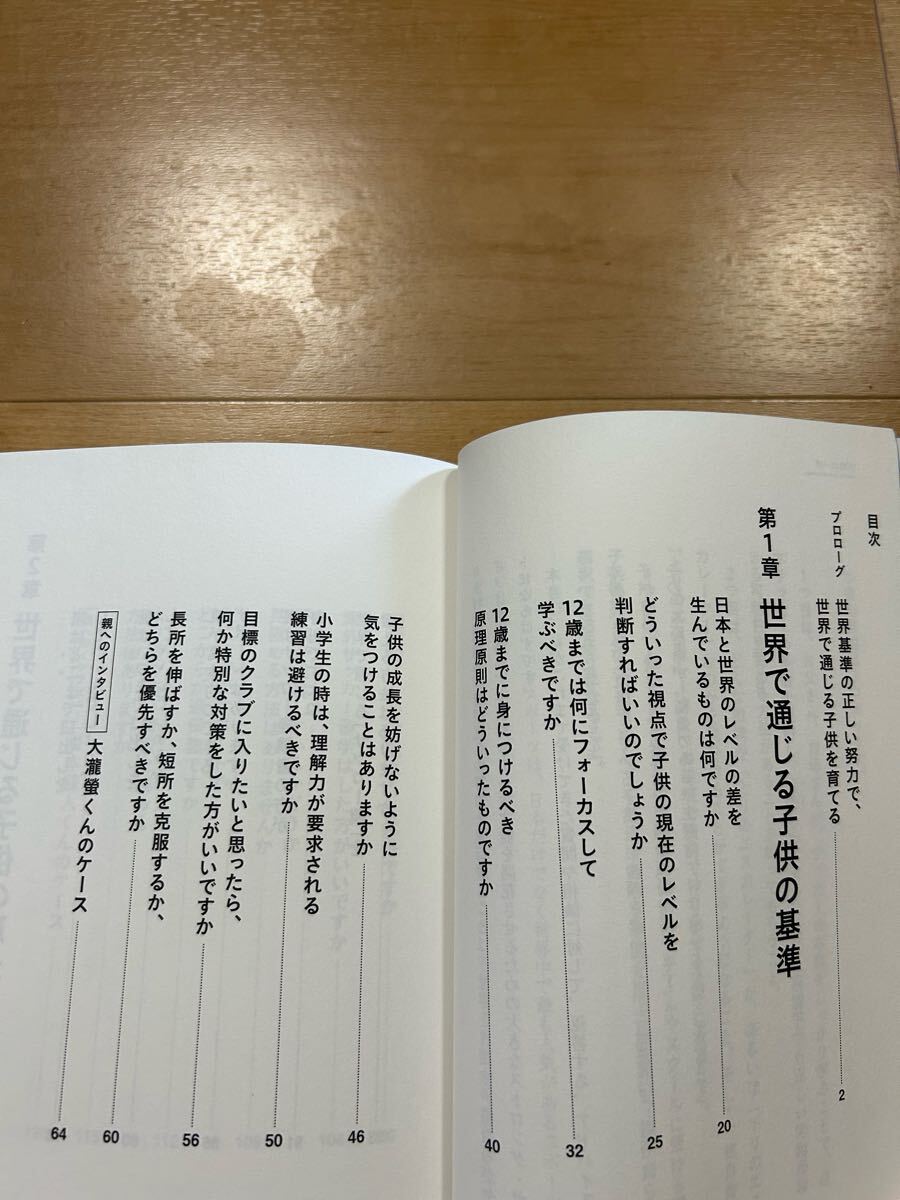 目次
プロローグ
世界基準の正しい努力で、
世界で通じる子供を育てる
2
第1章 世界で通じる子供の基準
日本と世界のレベルの差を
生んでいるものは何ですか
20
どういった視点で子供の現在のレベルを
判断すればいいのでしょうか
25
12歳までは何にフォーカスして
学ぶべきですか
32
12歳までに身につけるべき
原理原則はどういったものですか
40
子供の成長を妨げないように
気をつけることはありますか
46
小学生の時は、理解力が要求される
練習は避けるべきですか
50
目標のクラブに入りたいと思ったら、
何か特別な対策をした方がいいですか
56
長所を伸ばすか、短所を克服するか、
どちらを優先すべきですか
60
親へのインタビュー 大瀧螢くんのケース
64